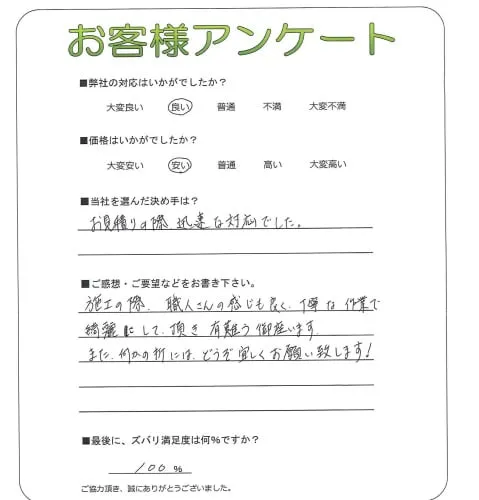 お客様アンケート
■弊社の対応はいかがでしたか?
大変良い 良い 普通 不満 大変不満
■価格はいかがでしたか?
大変安い 安い 普通 高い 大変高い
■当社を選んだ決め手は?
お見積りの際 迅速な対応でした。
■ご感想・ご要望などをお書き下さい。
施工の際、職人さんの感じも良く、丁寧な作業で
綺麗にして、頂き 有難う御座います
また、何かの折には、どうぞ宜しくお願い致します!
■最後に、ズバリ満足度は何%ですか?
100 %
ご協力頂き、誠にありがとうございました。